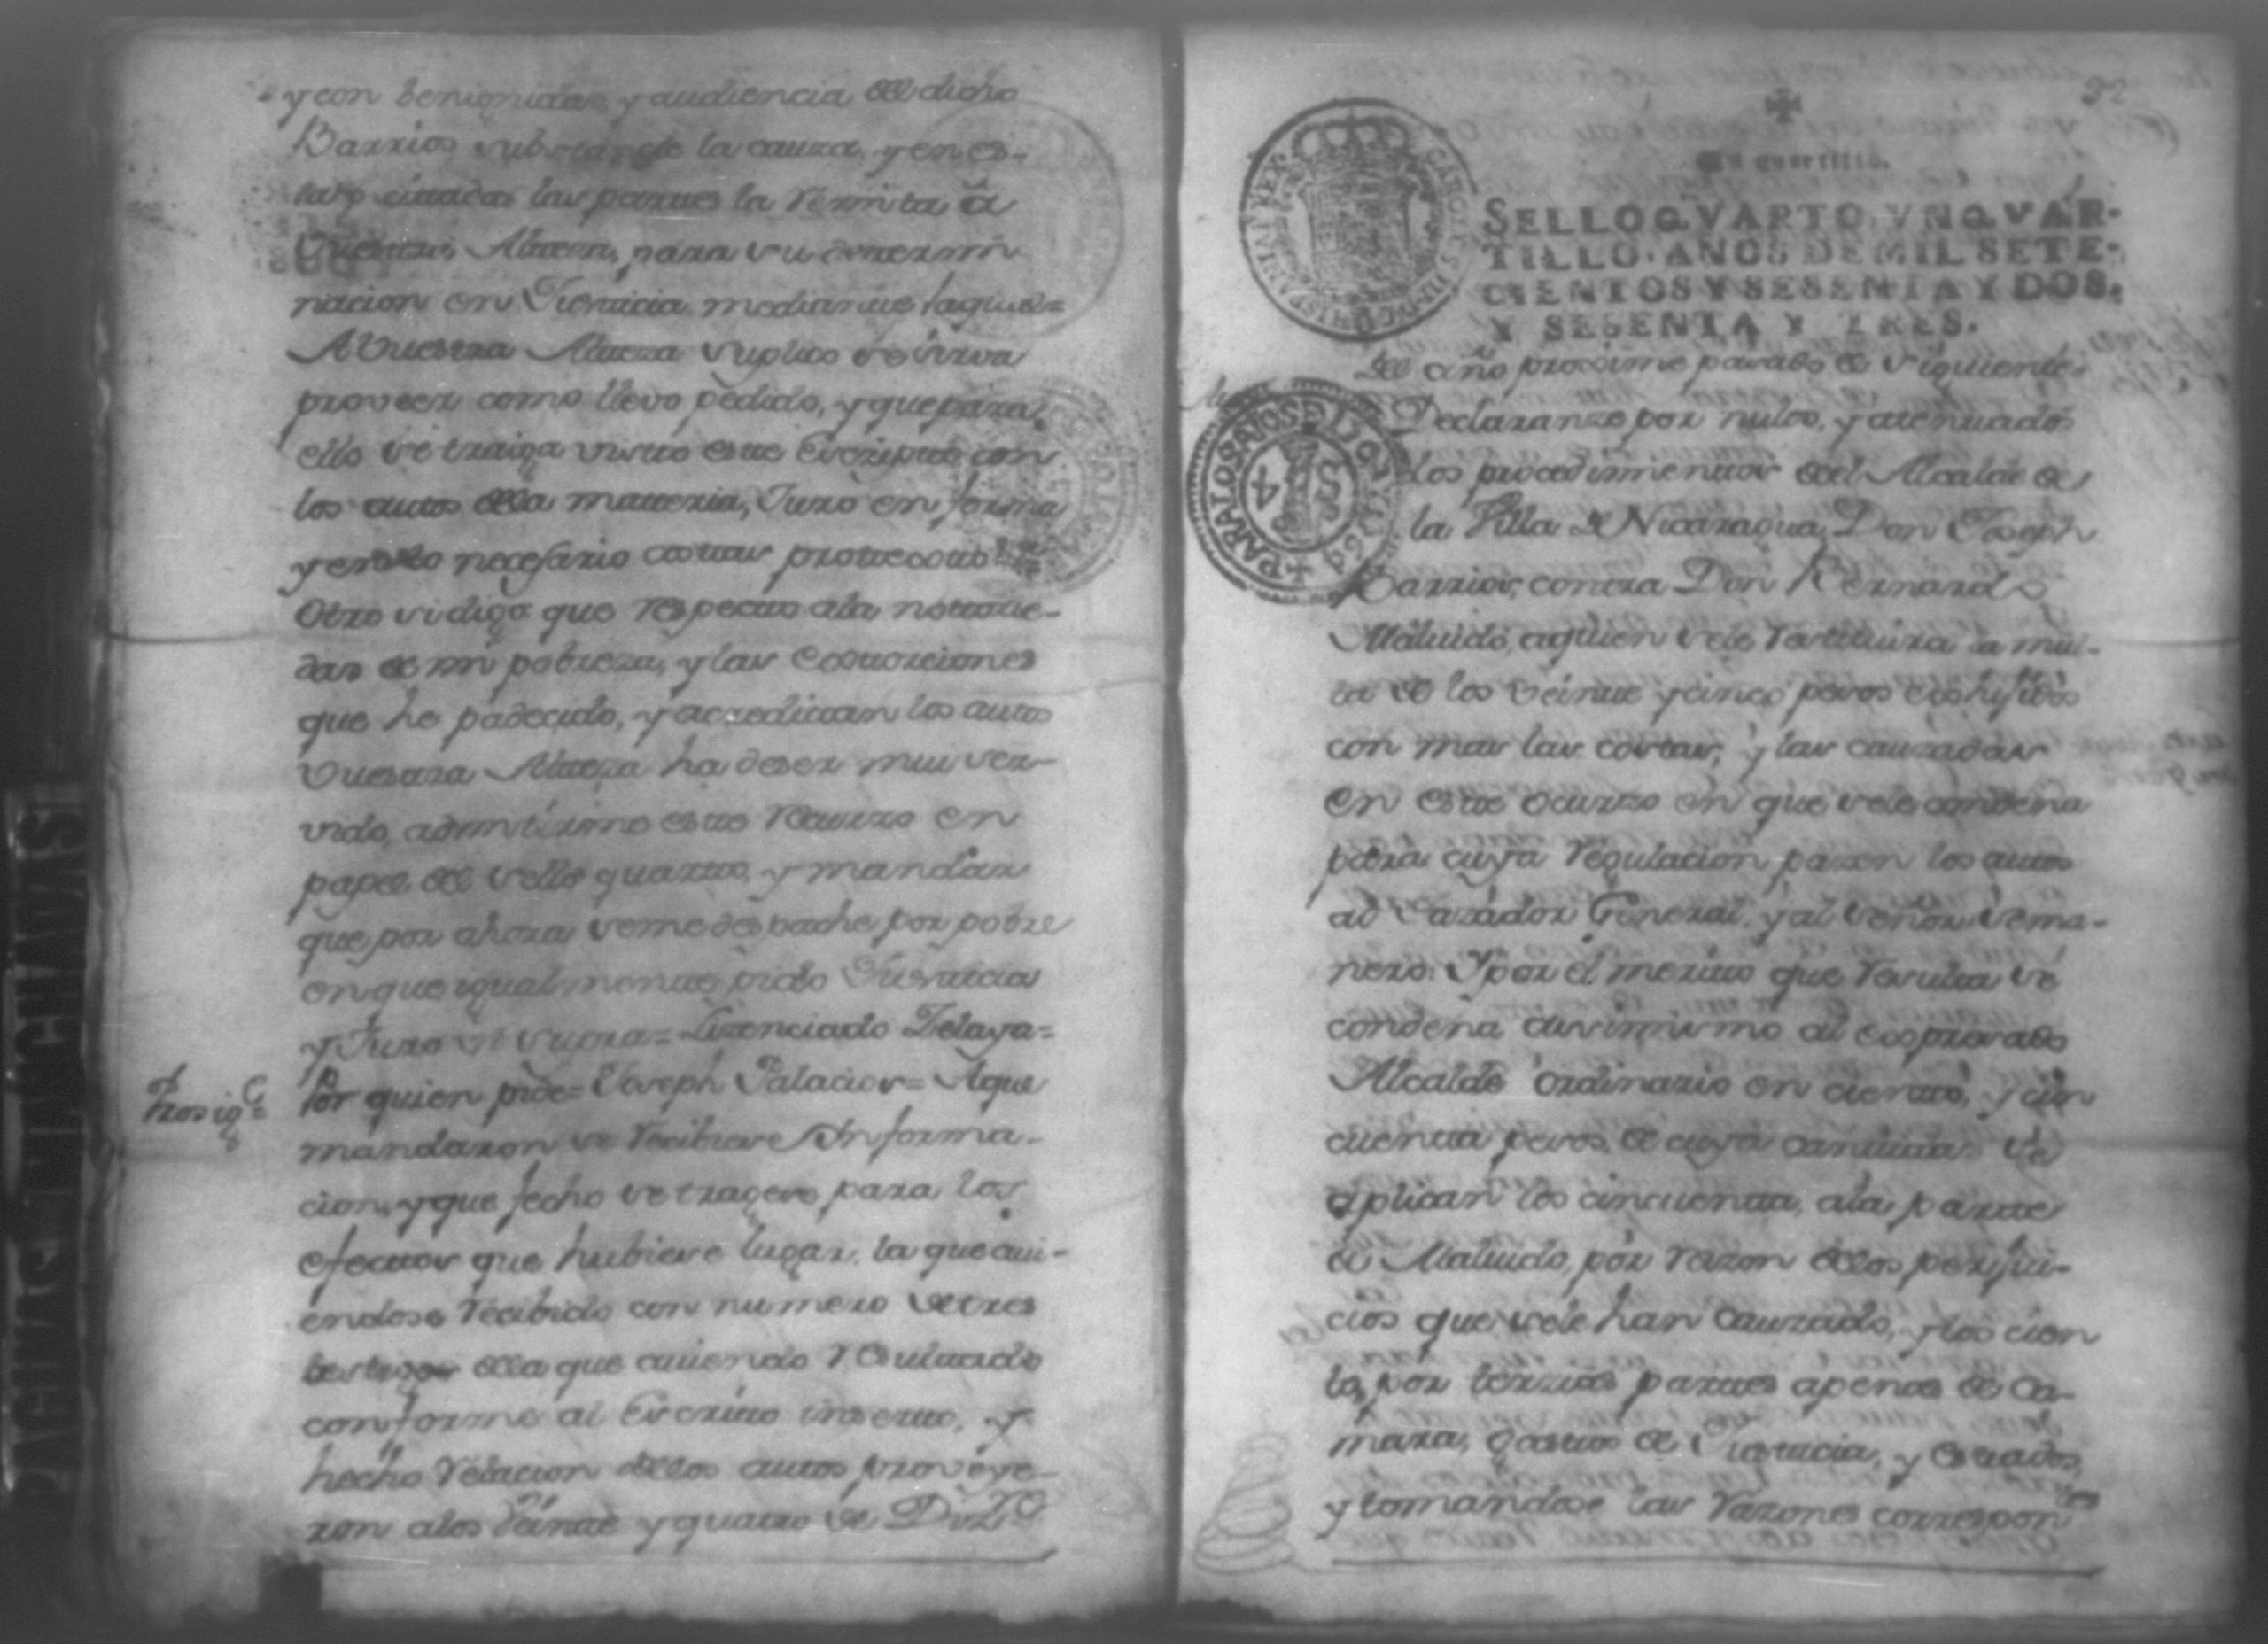 y con benignidad, y audiencia de dicho
Barrios substancie la causa, y en es-
tado citadas las partes la remita â
Vuestra Alteza, para su determi
nacion en Justicia mediante laqual=
A Vuestra Alteza suplico se sirva
proveer como llevo pedido, y que para
ello se traiga visto este Escripto con
los autos de la materia, Juro en forma
y en lo necesario costas protexto
Otro si digo que respecto ala notorie-
dad de mi pobreza, y las extorciones
que he padecido, y acreditan los autos
Vuestra Alteza ha de ser mui ser-
vido, admitirme este recurso en
papel del sello quarto, y mandar
que por ahora seme despache por pobre
en que igualmente pido Justicia
y Juro ut supra= Lizenciado Zelaya=
Por quien pide= Joseph Palacios= Aque
mandaron se recibiere Informa-
cion, y que fecho se tragere para los
efectos que hubiere lugar, la que avi-
endose recibido con numero de tres
testigos della que aviendo resultado
conforme al Escrito inserto, y
hecho relacion de los autos proveye-
ron alos veinte y quatro de Diz.e
Prosig.e
32
Un quartillo.
SELLO QVARTO, VN QVAR-
TILLO, AÑOS DE MIL SETE-
CIENTOS Y SESENTA Y DOS,
Y SESENTA Y TRES.
CAROLUS III D G HISPANIAR REX
PARA LOS AÑOS D 1764 Y 65
del año proximo pasado el siguiente
Declaranse por nulos, y atentados
los procedimientos del Alcalde de
la Villa de Nicaragua, Don Joseph
Barrios, contra Don Bernardo
Maluido, aquien sele restituira la mul-
ta de los veinte y cinco pesos exhividos
con mas las costas, y las causadas
en este ocurso en que sele condena
para cuya regulacion pasen los autos
al Tasador General, y al señor Sema-
nero: Y por el merito que resulta se
condena assimismo al expresado
Alcalde Ordinario en ciento, y cin
cuenta pesos, de cuya cantidad se
aplican los cincuenta, ala parte
de Maluido, por razon de los perjui-
cios que sele han causado, y los cien
to, por tercias partes apenas de Ca-
mara, gastos de Justicia, y Estrados
y tomandose las razones correspon
es